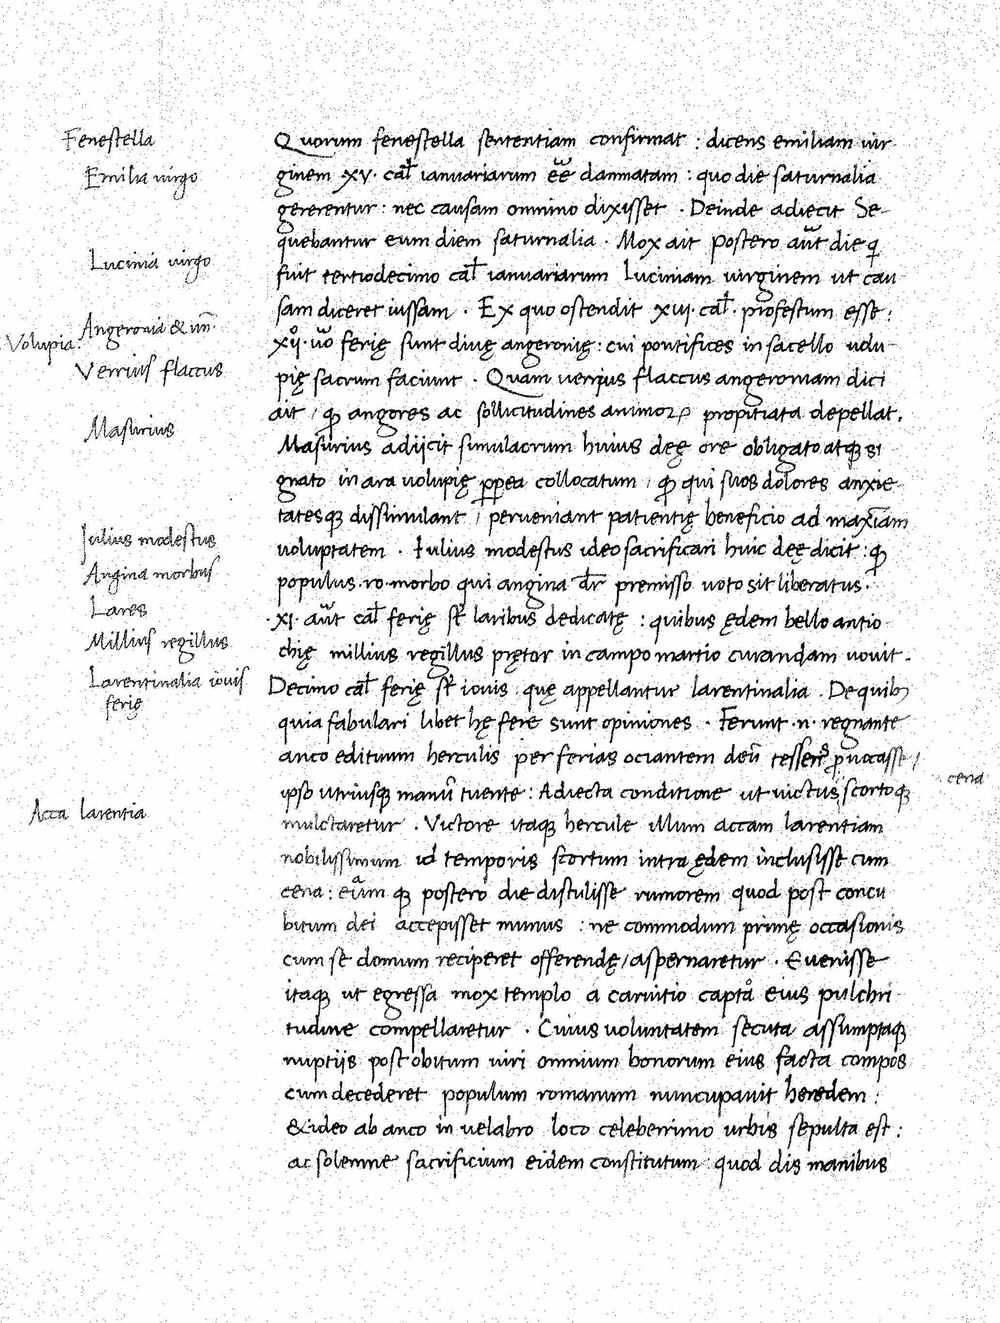 Fenestella
Emilia virgo
Lucinia virgo
Angeronia & un̄.
Volupia.
Verrius flaccus
Masurius
Julius modestus
Angina morbus
Lares
Millius regillus
Larentinalia iouis
ferię
Acca larentia
Quorum fenestella sententiam confirmat : dicens emiliam uir-
ginem .xv. cal̄ ianuariarum ēē damnatam : quo die saturnalia
gererentur : nec causam omnino dixisset . Deinde adiecit Se-
quebantur eum diem saturnalia . Mox ait postero aūt die q
fuit tertiodecimo cal̄ ianuariarum luciniam uirginem ut cau
sam diceret iussam . Ex quo ostendit xvi. cal̄. profestum esse :
xij. ůo ferię sunt diuę angeronię : cui pontifices in sacello uolu-
pię sacrum faciunt . Quam uerrius flaccus angeroniam dici
ait / ꝙ angores ac sollicitudines animoꝝ propitiata depellat.
Masurius adijcit simulacrum huius deę ore obligato atqꝫ si
gnato in ara uolupię ꝓpea collocatum / ꝙ qui suos dolores anxie-
tatesqꝫ dissimulant / perueniant patientię beneficio ad maxīam
uoluptatem . Iulius modestus ideo sacrificari huic deę dicit : ꝙ
populus .ro. morbo qui angina dr̄ premisso uoto sit liberatus .
.xi. aūt cal̄ ferię st̄ laribus dedicatę : quibus ędem bello antio
chię millius regillus prętor in campo martio curandam uouit .
Decimo cal̄ ferię st̄ iouis . quę appellantur larentinalia . De quibꝫ
quia fabulari libet hę fere sunt opiniones . Ferunt .n. regnante
anco edituum herculis per ferias ociantem deū tesseris prouocasse /
ipso utriusqꝫ manū tuente : Adiecta conditione ut uictus scortoqꝫ
cena
mulctaretur . Victore itaqꝫ hercule illum accam larentiam
nobilissimum id temporis scortum intra ędem inclusisse cum
cena : eam qꝫ postero die distulisse rumorem quod post concu
bitum dei accepisset munus : ne commodum primę occasionis
cum se domum reciperet offerendę / aspernaretur . Euenisse
itaqꝫ ut egressa mox templo a carutio capta eius pulchri
tudine compellaretur . Cuius uoluntatem secuta assumptaqꝫ
nuptijs post obitum uiri omnium bonorum eius facta compos
cum decederet populum romanum nuncupauit heredem :
& ideo ab anco in uelabro loco celeberrimo urbis sepulta est :
ac solemne sacrificium eidem constitutum : quod dis manibus